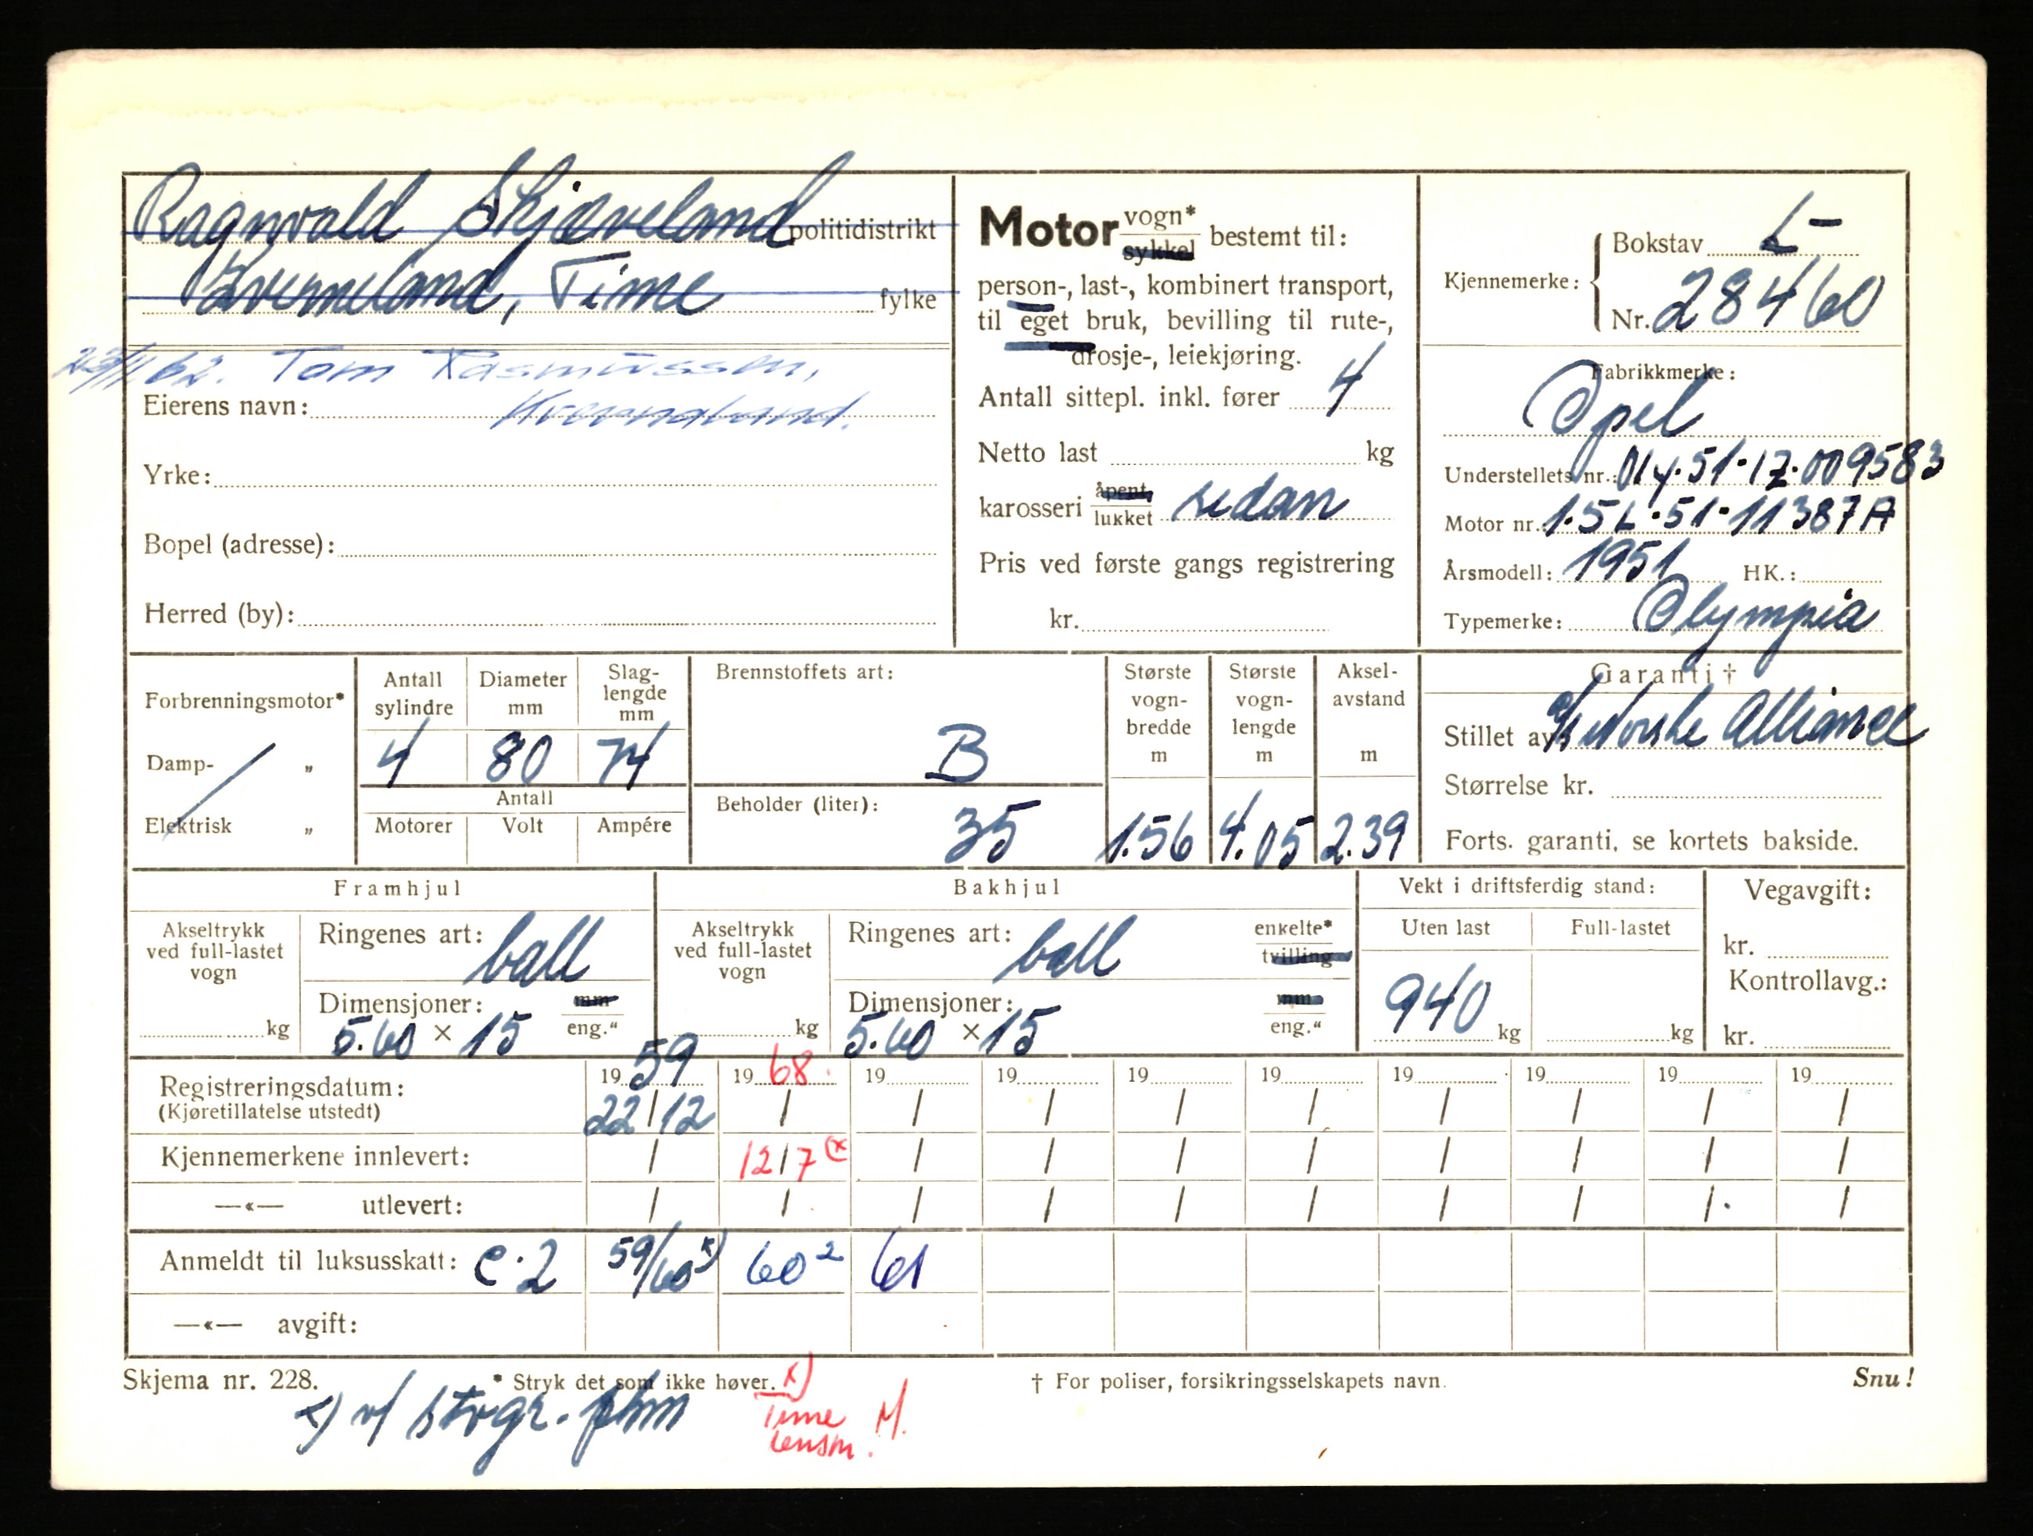 Ragnvald Skjæveland politidistrikt
Kverneland, Time fylke
23/11 62. Tom Rasmussen,
Eierens navn: Kverneland.
Yrke:
Bopel (adresse):
Herred (by):
Motor vogn* / sykkel bestemt til:
person-, last-, kombinert transport,
til eget bruk, bevilling til rute-,
drosje-, leiekjøring.
Antall sittepl. inkl. fører 4
Netto last kg
karosseri åpent, / lukket sedan
Pris ved første gangs registrering
kr.
Kjennemerke: Bokstav L-
Nr. 28460
Fabrikkmerke:
Opel
Understellets nr.: Oly-51-1Z-009583
Motor nr.: 1.5L-51-11387A
Årsmodell: 1951 HK.:
Typemerke: Olympia
Forbrenningsmotor*
Damp- „
Elektrisk „
Antall sylindre 4
Diameter mm 80
Slag-lengde mm 74
Antall
Motorer Volt Ampére
Brennstoffets art: B
Beholder (liter): 35
Største vogn-bredde m 1.56
Største vogn-lengde m 4.05
Aksel-avstand m 2.39
Garanti †
Stillet av: Norske Alliance
Størrelse kr.
Forts. garanti, se kortets bakside.
Framhjul
Akseltrykk ved full-lastet vogn kg
Ringenes art: ball
Dimensjoner: mm / eng."
5.60 × 15
Bakhjul
Akseltrykk ved full-lastet vogn kg
Ringenes art: ball enkelte* / tvilling
Dimensjoner: mm / eng."
5.60 × 15
Vekt i driftsferdig stand:
Uten last Full-lastet
940 kg kg
Vegavgift:
kr.
Kontrollavg.:
kr.
Registreringsdatum: 19 59 19 68. 19 19 19 19 19 19 19 19
(Kjøretillatelse utstedt) 22/12 / / / / / / / / /
Kjennemerkene innlevert: / 12/7 (x / / / / / / / /
—«— utlevert: / / / / / / / / / /
Anmeldt til luksusskatt: C.2 59/60 x) 60² 61
—«— avgift:
Skjema nr. 228. * Stryk det som ikke høver. † For poliser, forsikringsselskapets navn. Snu!
x) v/ stvgr. phm
x)
Time M.
lensm.